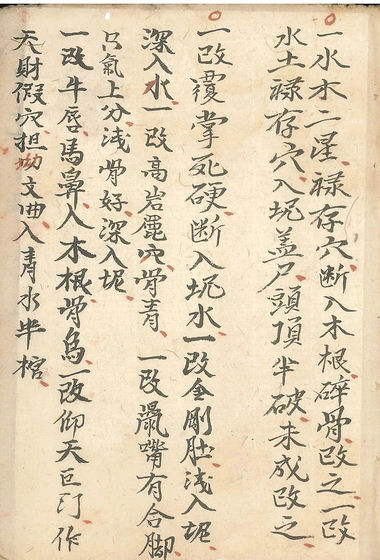 一水木二星禄存穴断入木根碎骨改之一改
水土禄存穴入坭盖尸頭頂半破未成改之
一改覆掌死硬断入坭水一改金剛肚浅入坭
深入水一改高岩儱穴骨青一改鼠嘴有合脚
只氣上分浅骨好深入坭
一改牛唇馬鼻入木根骨烏一改仰天巨門作
天財假穴担㘭文曲入青水半棺